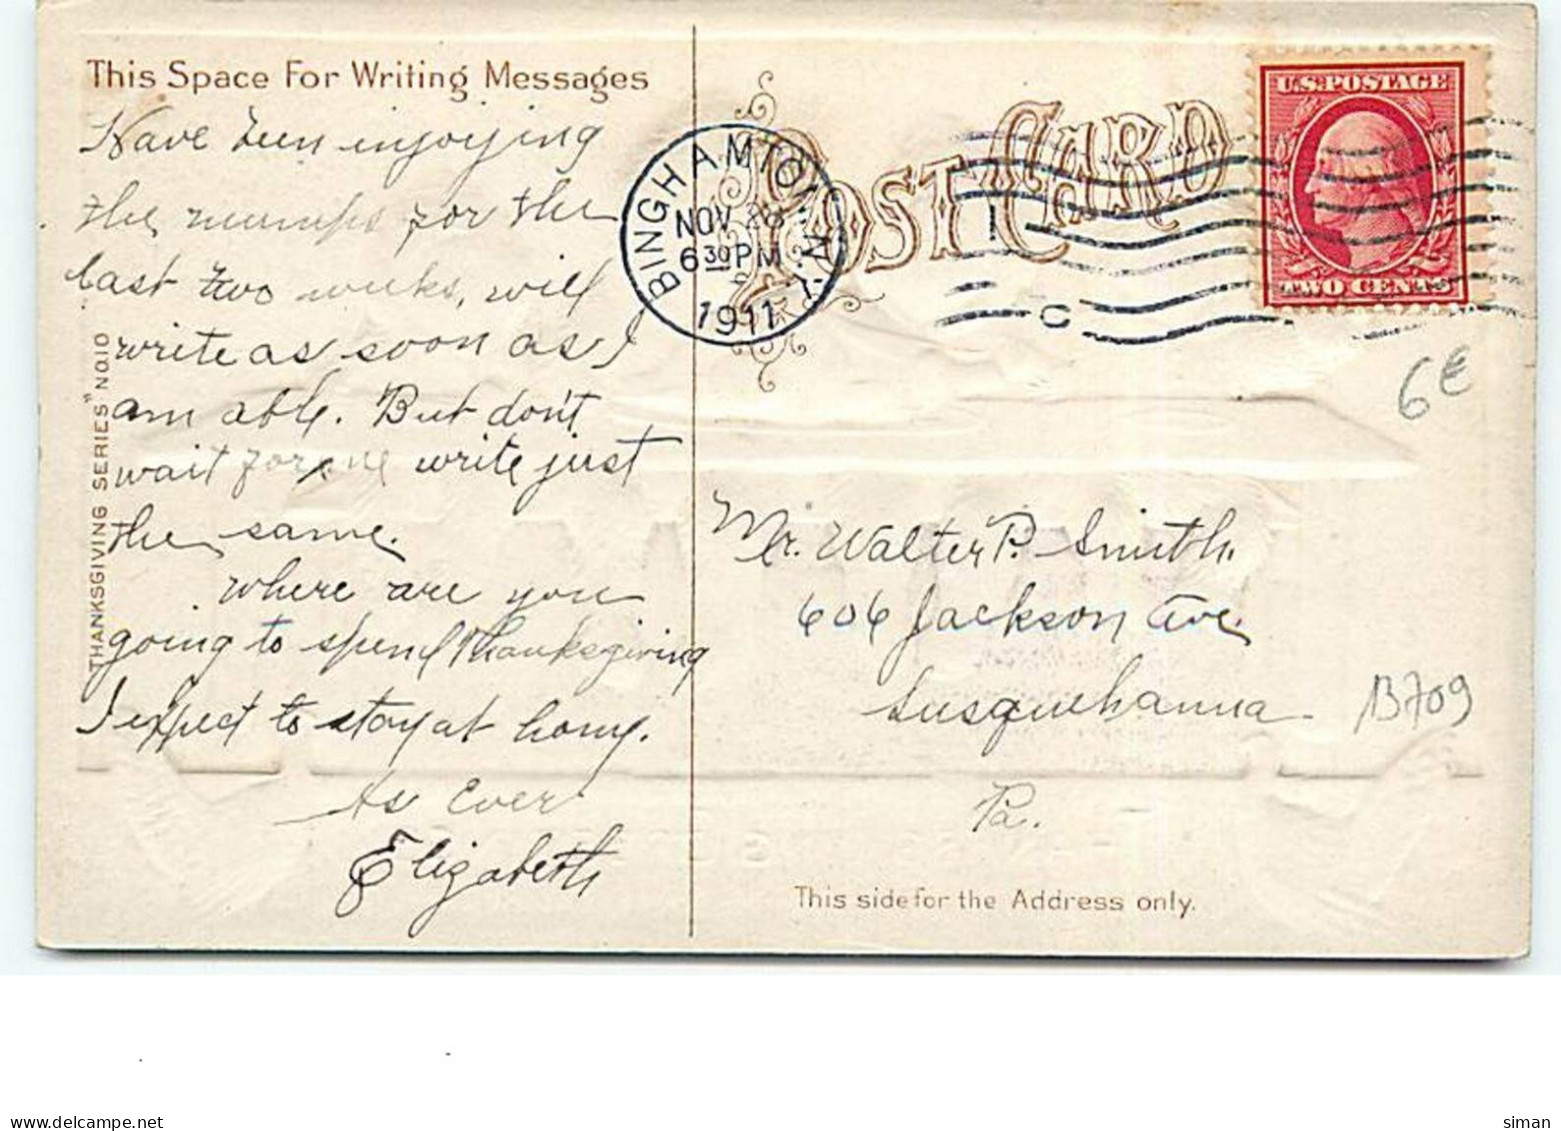 This Space For Writing Messages
Have been injoying
the mumps for the
last two weeks, will
write as soon as I
am able. But don't
wait for me write just
the same.
Where are you
going to spend Thanksgiving
I expect to stay at home.
As Ever
Elizabeth
THANKSGIVING SERIES" NO.10
POST CARD
BINGHAMTON, N.Y.
NOV 28
6 30 PM
1911
1
C
U.S. POSTAGE
TWO CENTS
6€
Mr. Walter P. Smith.
606 Jackson Ave.
Susquehanna
B709
Pa.
This side for the Address only.
www.delcampe.net
siman